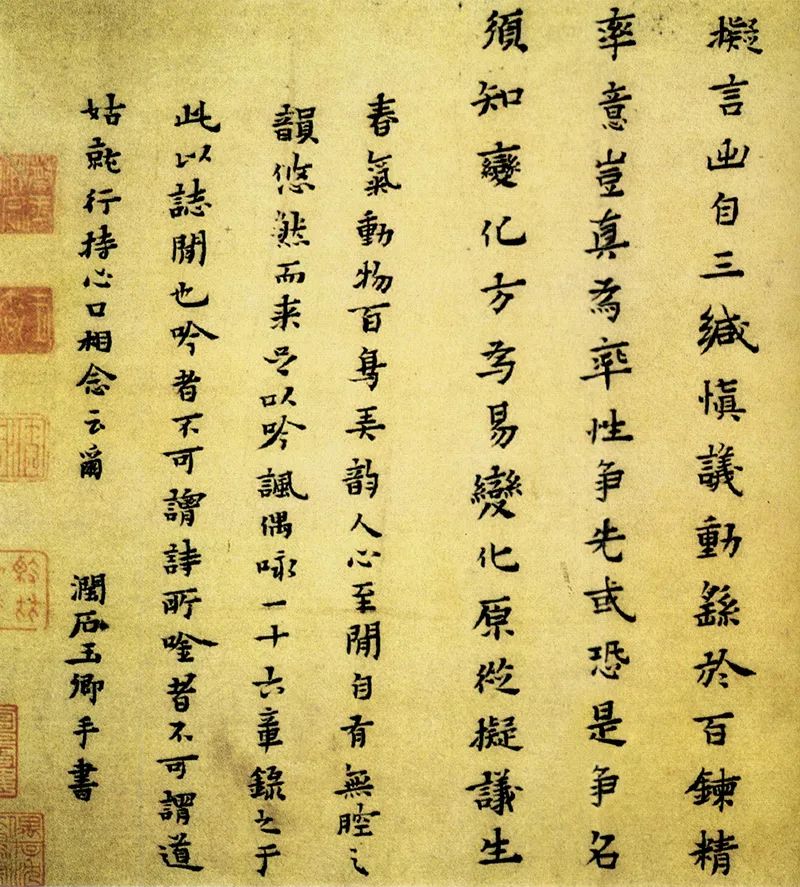 擬言出自三緘慎議動繇於百鍊精
率意豈真為率性争先或恐是争名
須知變化方為易變化原從擬議生
春氣動物百鳥弄韵人心至閒自有無腔之
韻悠然而来足以吟諷偶咏一十六章錄之于
此以誌閒也吟者不可謂詩所唫者不可謂道
姑就行持心口相念云爾
潤石玉卿手書